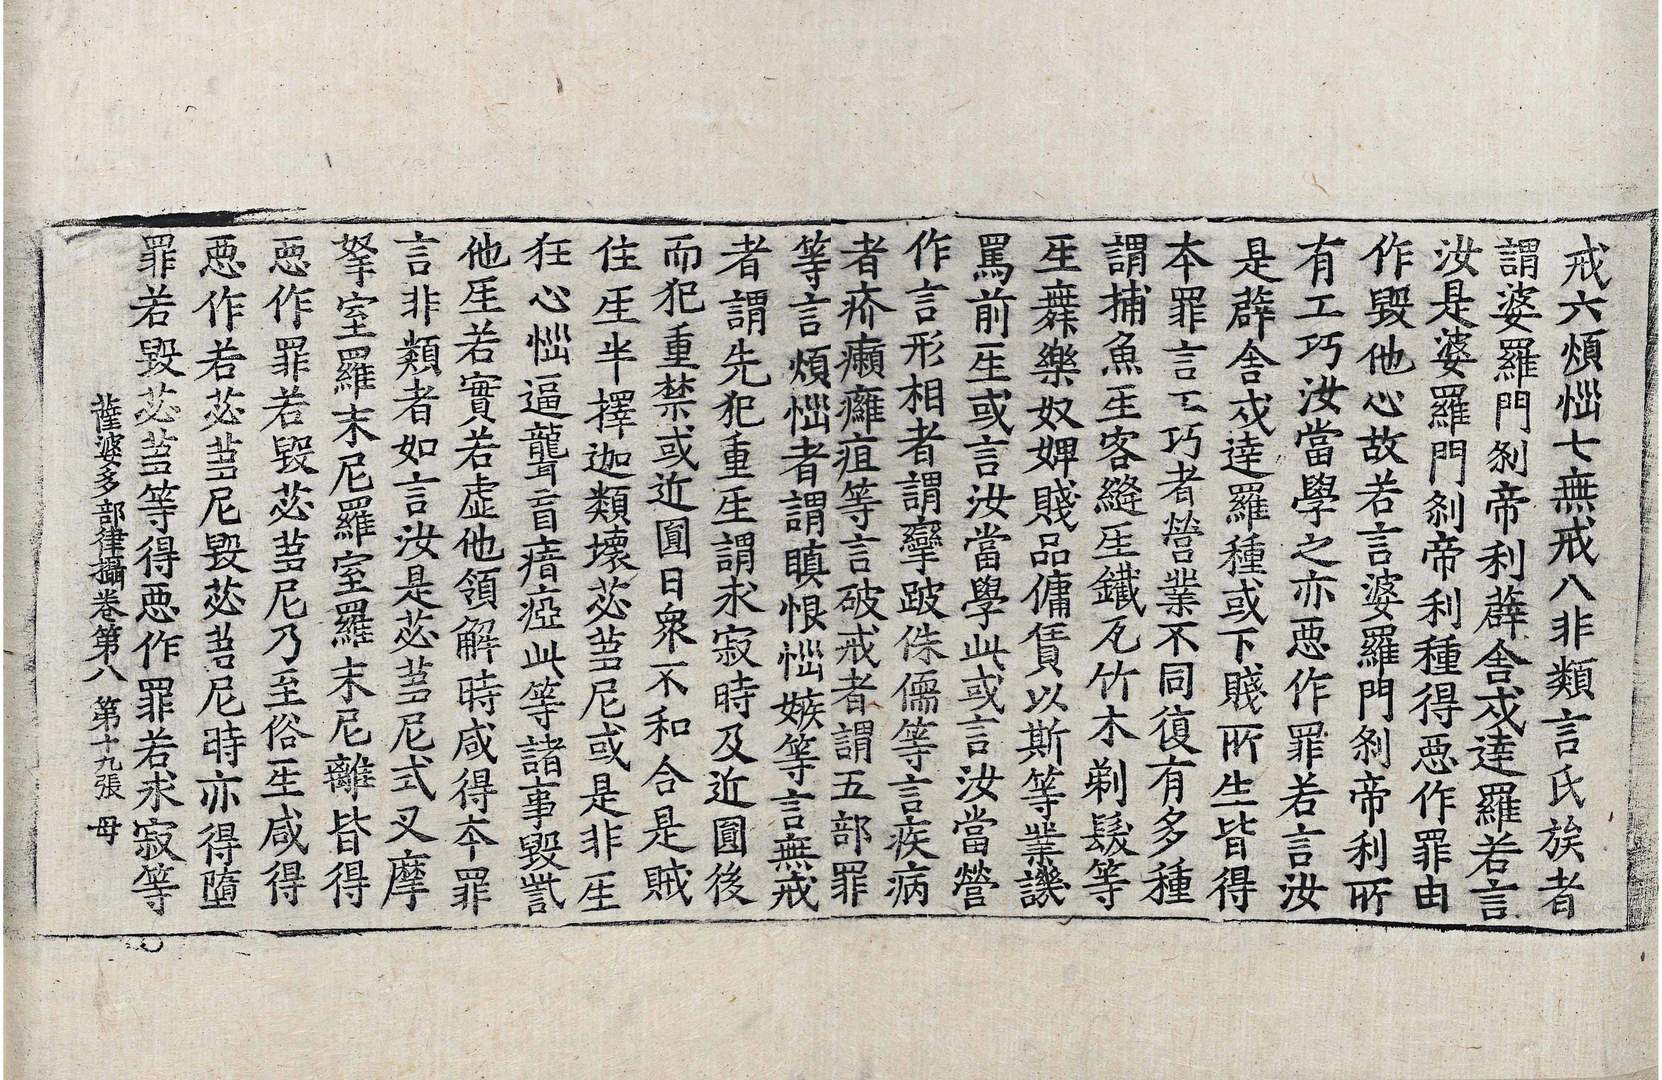 戒六煩惱七無戒八非類言氏族者
謂婆羅門刹帝利薜舍戍達羅若言
汝是婆羅門刹帝利種得惡作罪由
作毀他心故若言婆羅門刹帝利所
有工巧汝當學之亦惡作罪若言汝
是薜舍戍達羅種或下賤所生皆得
本罪言工巧者營業不同復有多種
謂捕魚生客縫生鐵瓦竹木剃髮等
生舞樂奴婢賤品傭賃以斯等業譏
罵前生或言汝當學此或言汝當營
作言形相者謂攣跛侏儒等言疾病
者疥癩癰疽等言破戒者謂五部罪
等言煩惱者謂瞋恨惱嫉等言無戒
者謂先犯重生謂求寂時及近圓後
而犯重禁或近圓日衆不和合是賊
住生半擇迦類壞苾芻尼或是非生
狂心惱逼聾盲瘖瘂此等諸事毀訾
他生若實若虛他領解時咸得本罪
言非類者如言汝是苾芻尼式叉摩
拏室羅末尼羅室羅末尼離皆得
惡作罪若毀苾芻尼乃至俗生咸得
惡作若苾芻尼毀苾芻尼時亦得墮
罪若毀苾芻等得惡作罪若求寂等
薩婆多部律攝卷第八 第十九張 母